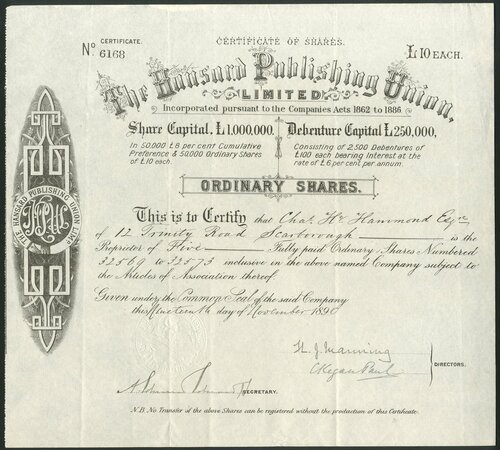 CERTIFICATE.
CERTIFICATE OF SHARES.
No. 6168
£10 EACH.
The Hansard Publishing Union,
LIMITED
Incorporated pursuant to the Companies Acts 1862 to 1886.
Share Capital, £1,000,000,
In 50,000 £8 per cent Cumulative
Preference & 50,000 Ordinary Shares
of £10 each.
Debenture Capital £250,000,
Consisting of 2,500 Debentures of
£100 each bearing Interest at the
rate of £6 per cent per annum.
ORDINARY SHARES.
This is to Certify that Chas. Hy. Hammond Esqre
of 12 Trinity Road Scarborough is the
Proprietor of Five Fully paid Ordinary Shares Numbered
32569 to 32573 inclusive in the above named Company subject to
the Articles of Association thereof.
Given under the Common Seal of the said Company
this Nineteenth day of November 1890
THE HANSARD PUBLISHING UNION LIMD
H. J. Manning
C Kegan Paul
DIRECTORS.
SECRETARY.
N.B. No Transfer of the above Shares can be registered without the production of this Certificate.